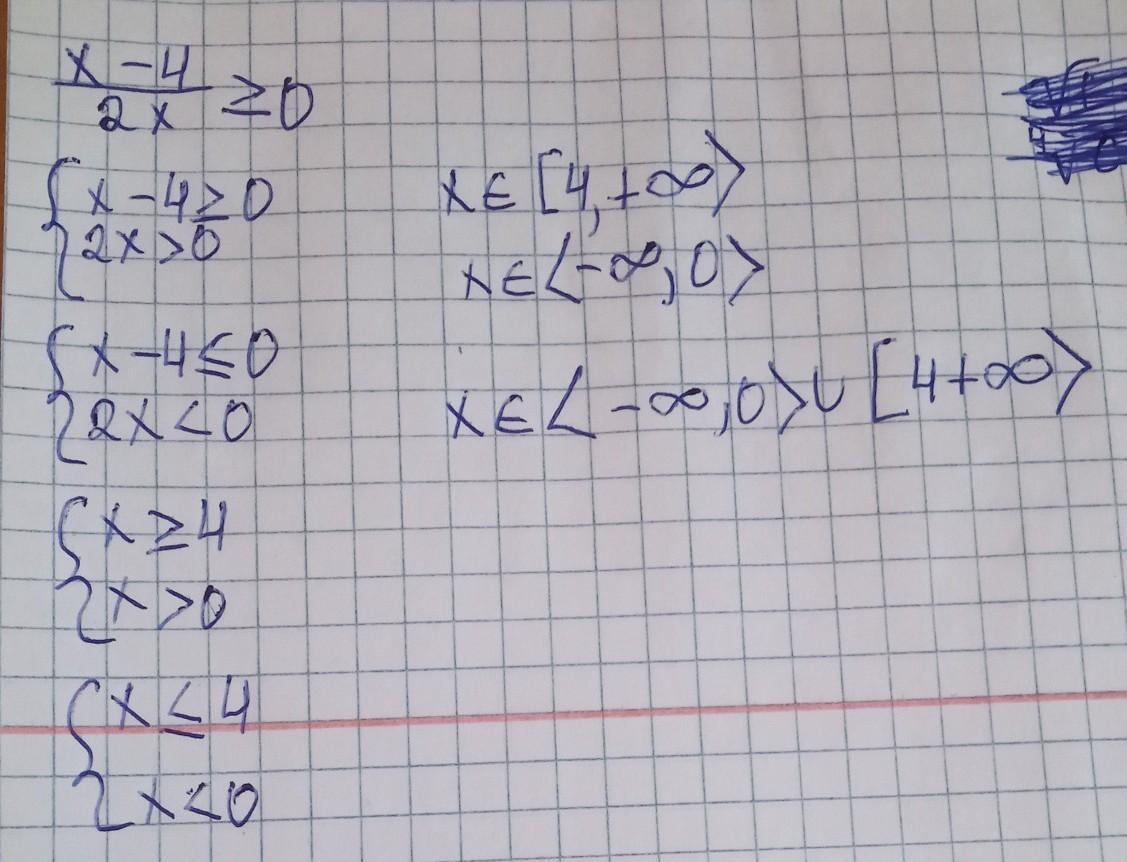 x-4
2x ≥0
{x-4≥0
2x>0
{x-4≤0
2x<0
{x≥4
x>0
{x≤4
x<0
x∈[4,+∞⟩
x∈⟨-∞,0⟩
x∈⟨-∞,0⟩∪[4+∞⟩